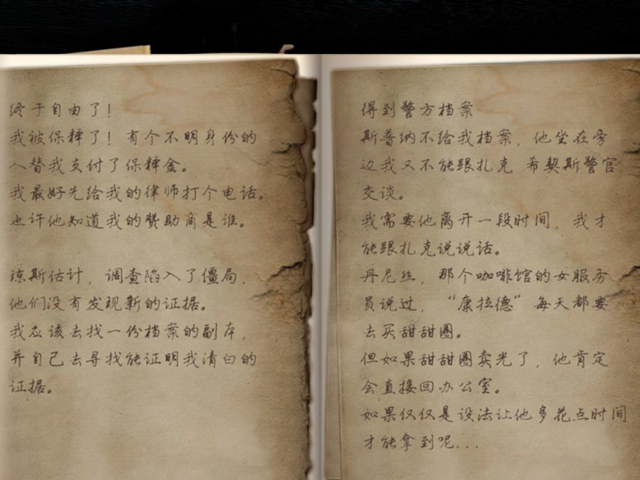 终于自由了！
我被保释了！有个不明身份的
人替我支付了保释金。
我最好先给我的律师打个电话。
也许他知道我的赞助商是谁。
琼斯估计，调查陷入了僵局，
他们没有发现新的证据。
我应该去找一份档案的副本，
并自己去寻找能证明我清白的
证据。
得到警方档案
斯普纳不给我档案，他坐在旁
边我又不能跟扎克 希契斯警官
交谈。
我需要他离开一段时间，我才
能跟扎克说说话。
丹尼丝，那个咖啡馆的女服务
员说过，“康拉德”每天都要
去买甜甜圈。
但如果甜甜圈卖光了，他肯定
会直接回办公室。
如果仅仅是设法让他多花点时间
才能拿到呢...